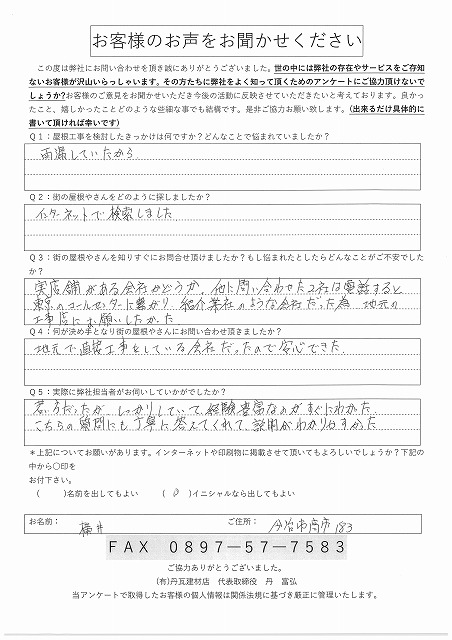 お客様のお声をお聞かせください
この度は弊社にお問い合わせを頂き誠にありがとうございました。世の中には弊社の存在やサービスをご存知
ないお客様が沢山いらっしゃいます。その方たちに弊社をよく知って頂くためのアンケートにご協力頂けないで
しょうか?お客様のご意見をお聞かせいただき今後の活動に反映させていただきたいと考えております。良かっ
たこと、嬉しかったことどのような些細な事でも結構です。是非ご協力お願い致します。(出来るだけ具体的に
書いて頂ければ幸いです)
Q1:屋根工事を検討したきっかけは何ですか?どんなことで悩まれていましたか?
雨漏していたから
Q2:街の屋根やさんをどのように探しましたか?
インターネットで検索しました
Q3:街の屋根やさんを知りすぐにお問合せ頂けましたか?もし悩まれたとしたらどんなことがご不安でした
か?
実店舗がある会社かどうか。他に問い合わせた2社は電話すると
東京のコールセンターに繋がり、紹介業社のような会社だった為、地元の
工事店にお願いしたかった
Q4:何が決め手となり街の屋根やさんにお問い合わせ頂きましたか?
地元で直接工事をしている会社だったので安心できた.
Q5:実際に弊社担当者がお伺いしていかがでしたか?
若い方だったが、しっかりしていて、経験豊富なのがすぐにわかった.
こちらの質問にも丁寧に答えてくれて、説明がわかりやすかった
*上記についてお願いがあります。インターネットや印刷物に掲載させて頂いてもよろしいでしょうか?下記の
中から〇印を
お付下さい。
( )名前を出してもよい (○)イニシャルなら出してもよい
お名前: 横井 ご住所: 今治市高市183
FAX 0897-57-7583
ご協力ありがとうございました。
(有)丹瓦建材店 代表取締役 丹 富弘
当アンケートで取得したお客様の個人情報は関係法規に基づき厳正に管理いたします。